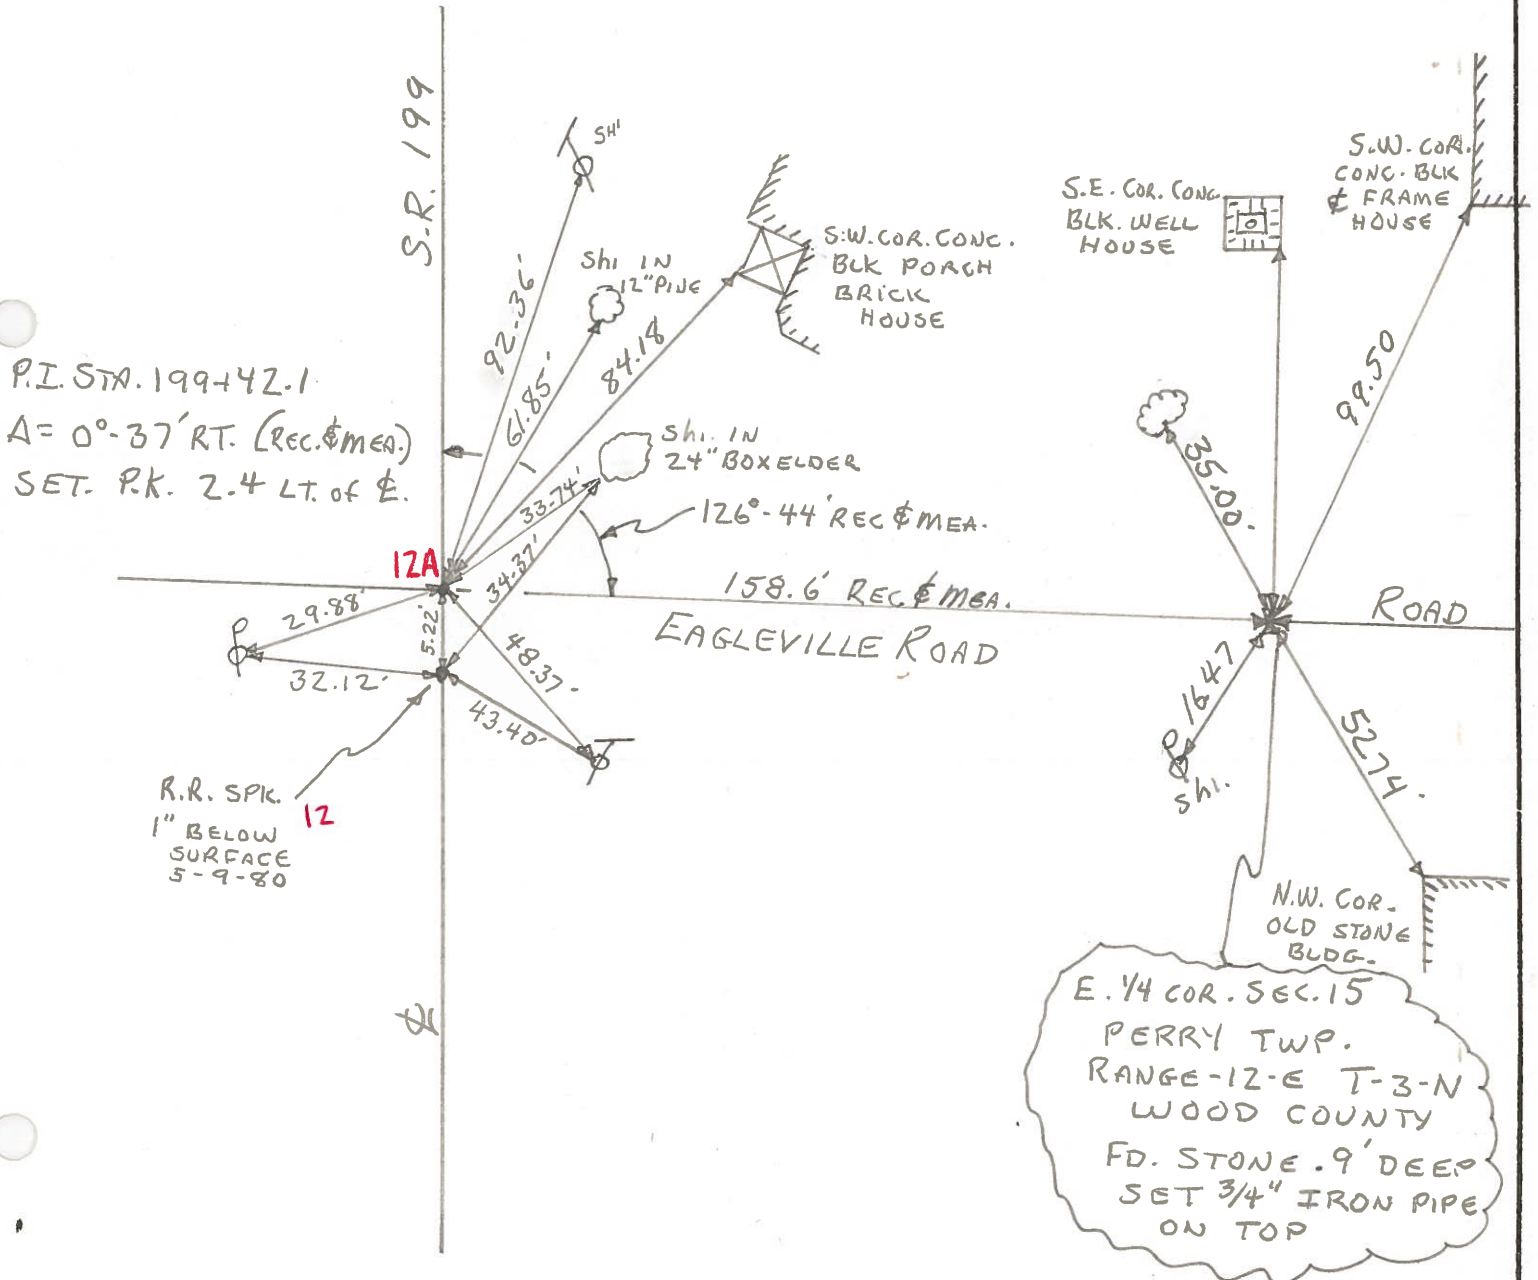 S.R. 199
SHI
92.36'
Shi IN
12" PINE
61.85'
S.W. COR. CONC.
BLK PORCH
BRICK
HOUSE
84.18
S.E. COR. CONC.
BLK. WELL
HOUSE
S.W. COR.
CONC. BLK
& FRAME
HOUSE
99.50
P.I. STA. 199+42.1
Δ= 0°-37' RT. (REC.&MEA.)
SET. P.K. 2.4 LT. of ℄.
Shi. IN
24" BOXELDER
33.74'
34.37'
126°-44' REC & MEA.
35.00.
12A
158.6' REC & MEA.
EAGLEVILLE ROAD
ROAD
29.88'
5.22'
32.12'
48.37'
43.40'
16.47
Shi.
52.74.
R.R. SPK.
12
1" BELOW
SURFACE
5-9-80
N.W. COR.
OLD STONE
BLDG.
℄
E. 1/4 COR. SEC. 15
PERRY TWP.
RANGE-12-E T-3-N
WOOD COUNTY
FD. STONE .9' DEEP
SET 3/4" IRON PIPE
ON TOP